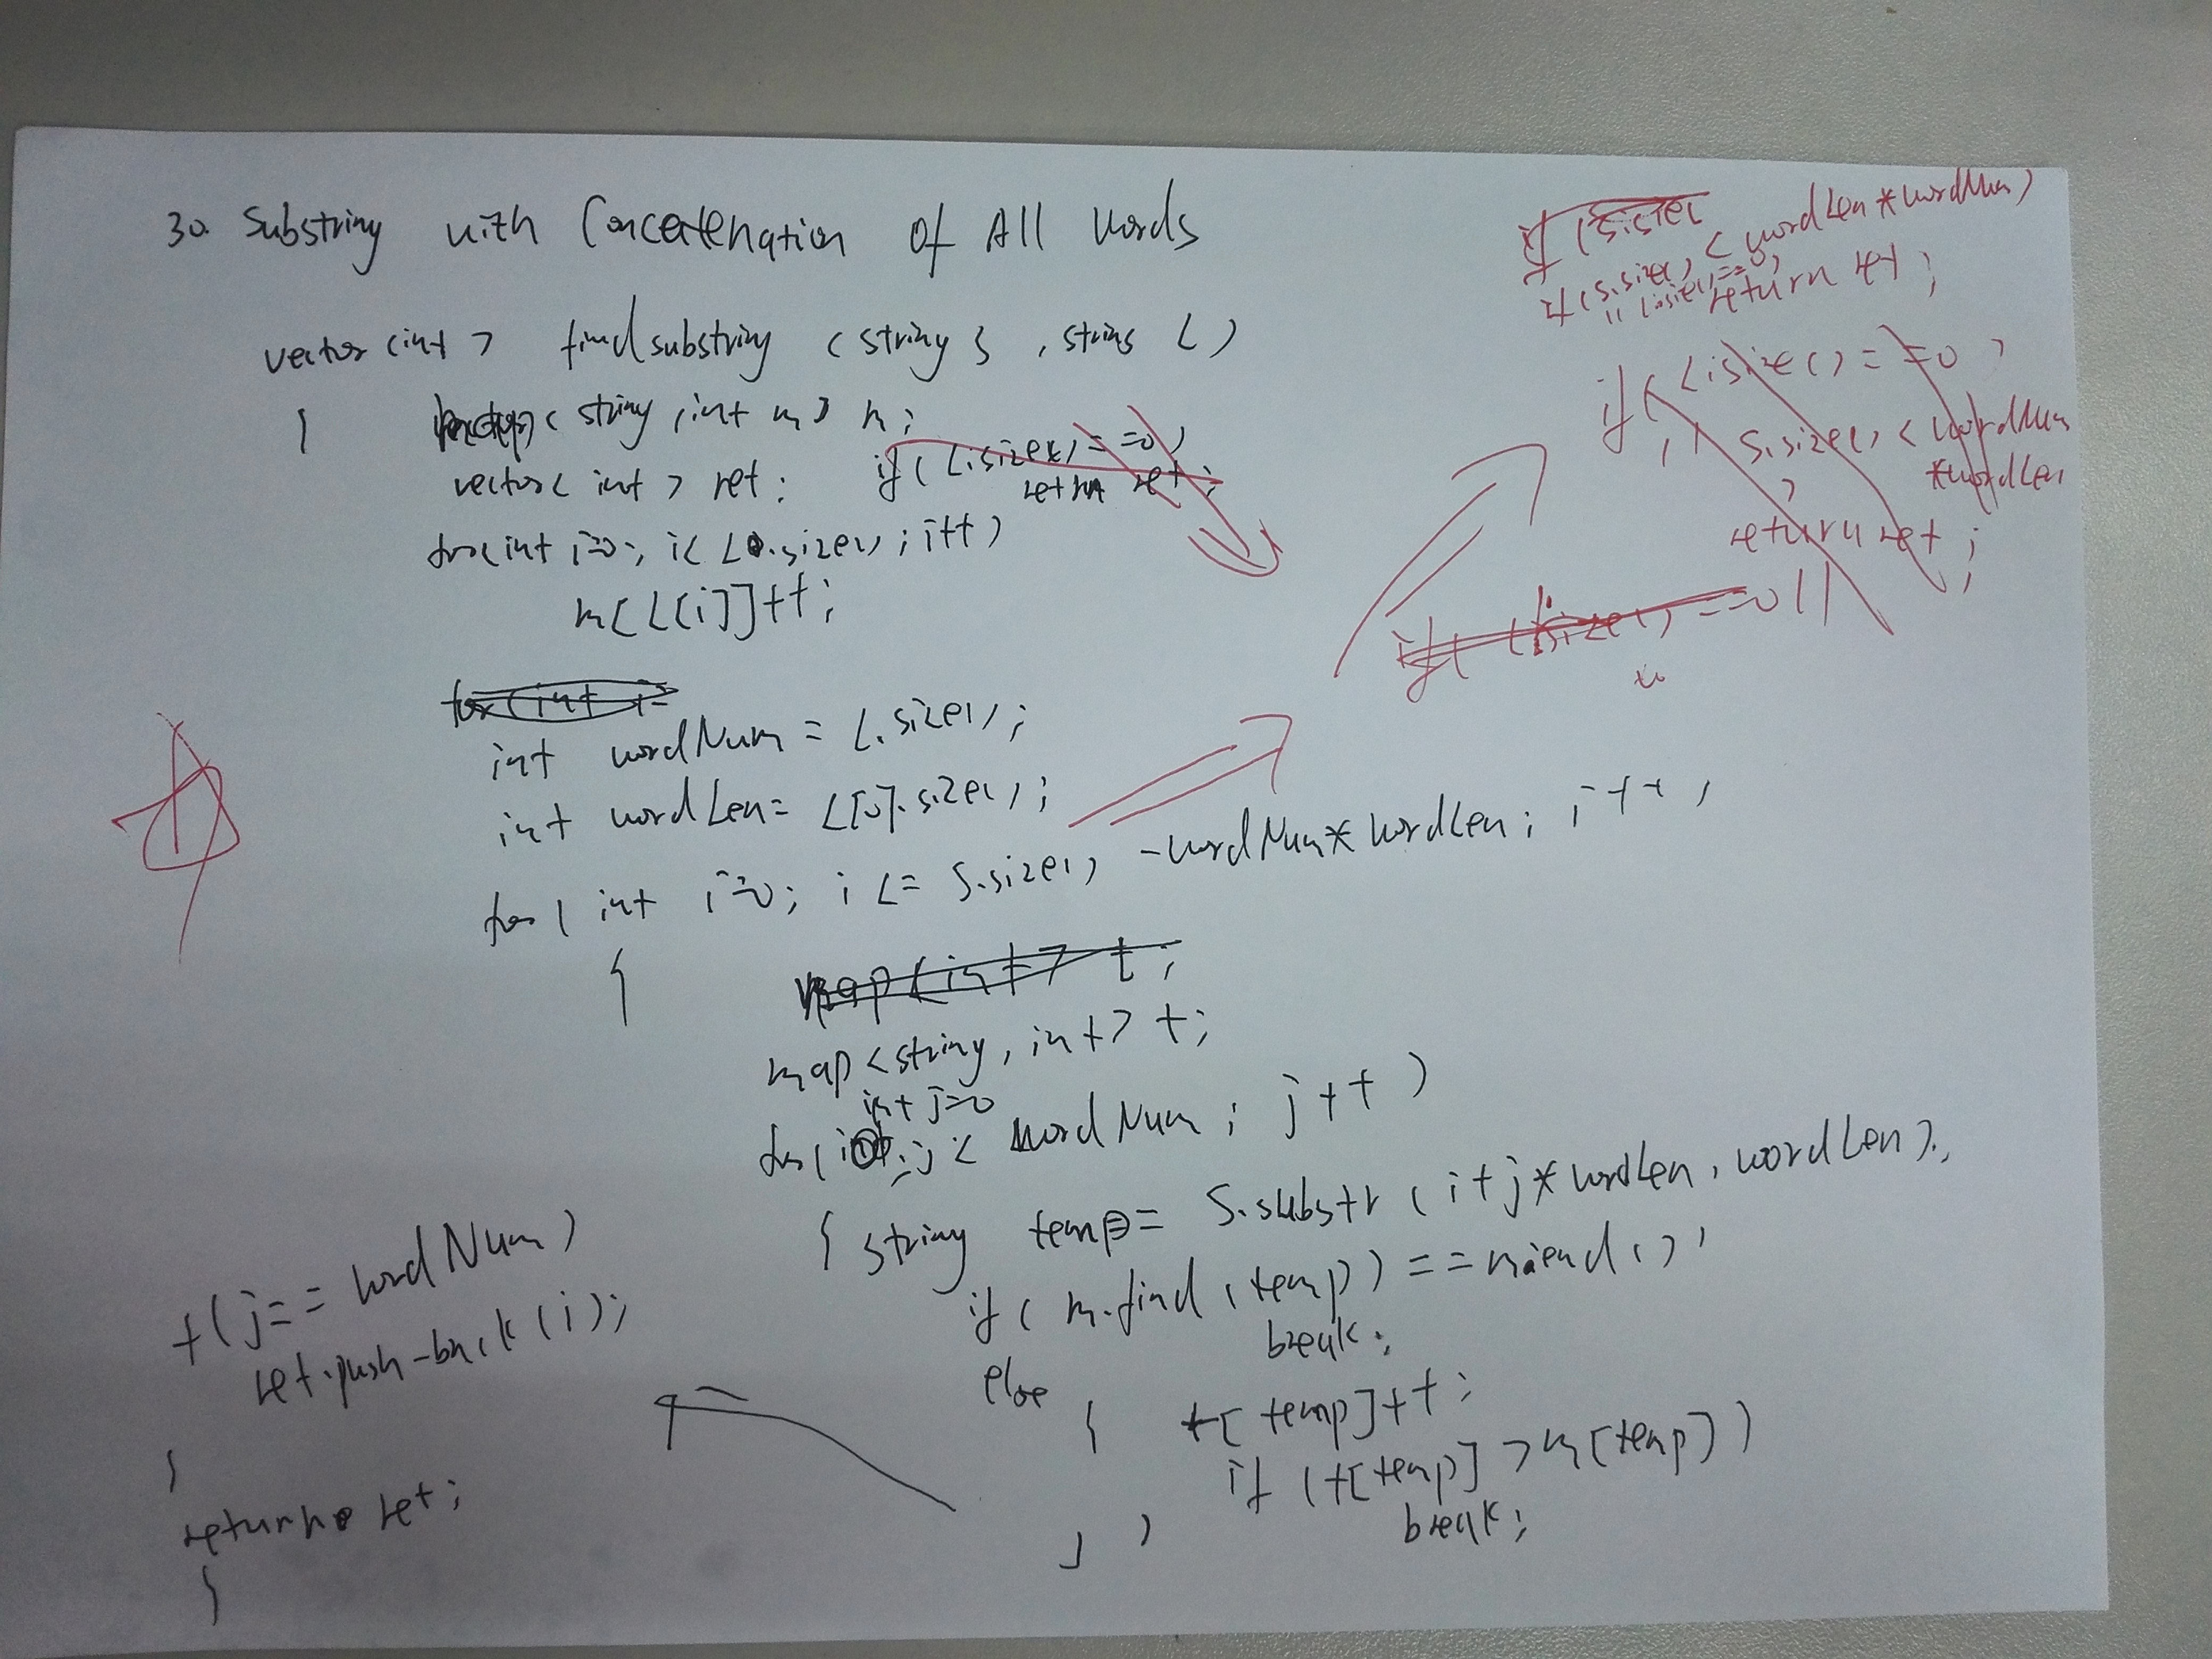 30. Substring with Concatenation of All Words
vector<int> findsubstring (string S, string L)
{
<string, int m> m;
vector<int> ret;
if(L.size()==0)
return ret;
for(int i=0; i<L.size(); i++)
m[L[i]]++;
for(int i=
int wordNum = L.size();
int wordLen = L[0].size();
for(int i=0; i<= S.size() -wordNum*wordLen; i++)
{
map<int> t;
map<string, int> t;
int j=0
for( ; j< wordNum; j++)
{ string temp = S.substr(i+j*wordLen, wordLen);
if(m.find(temp)==m.end())
break;
else
{ t[temp]++;
if(t[temp]>m[temp])
break;
}
}
if(j==wordNum)
ret.push-back(i);
}
return ret;
}
if(S.size(
if(S.size()<wordLen*wordNum)
||L.size()==0)
return ret;
if(L.size()==0
|| S.size()<wordNum
*wordLen
)
return ret;
if(L.size()==0||